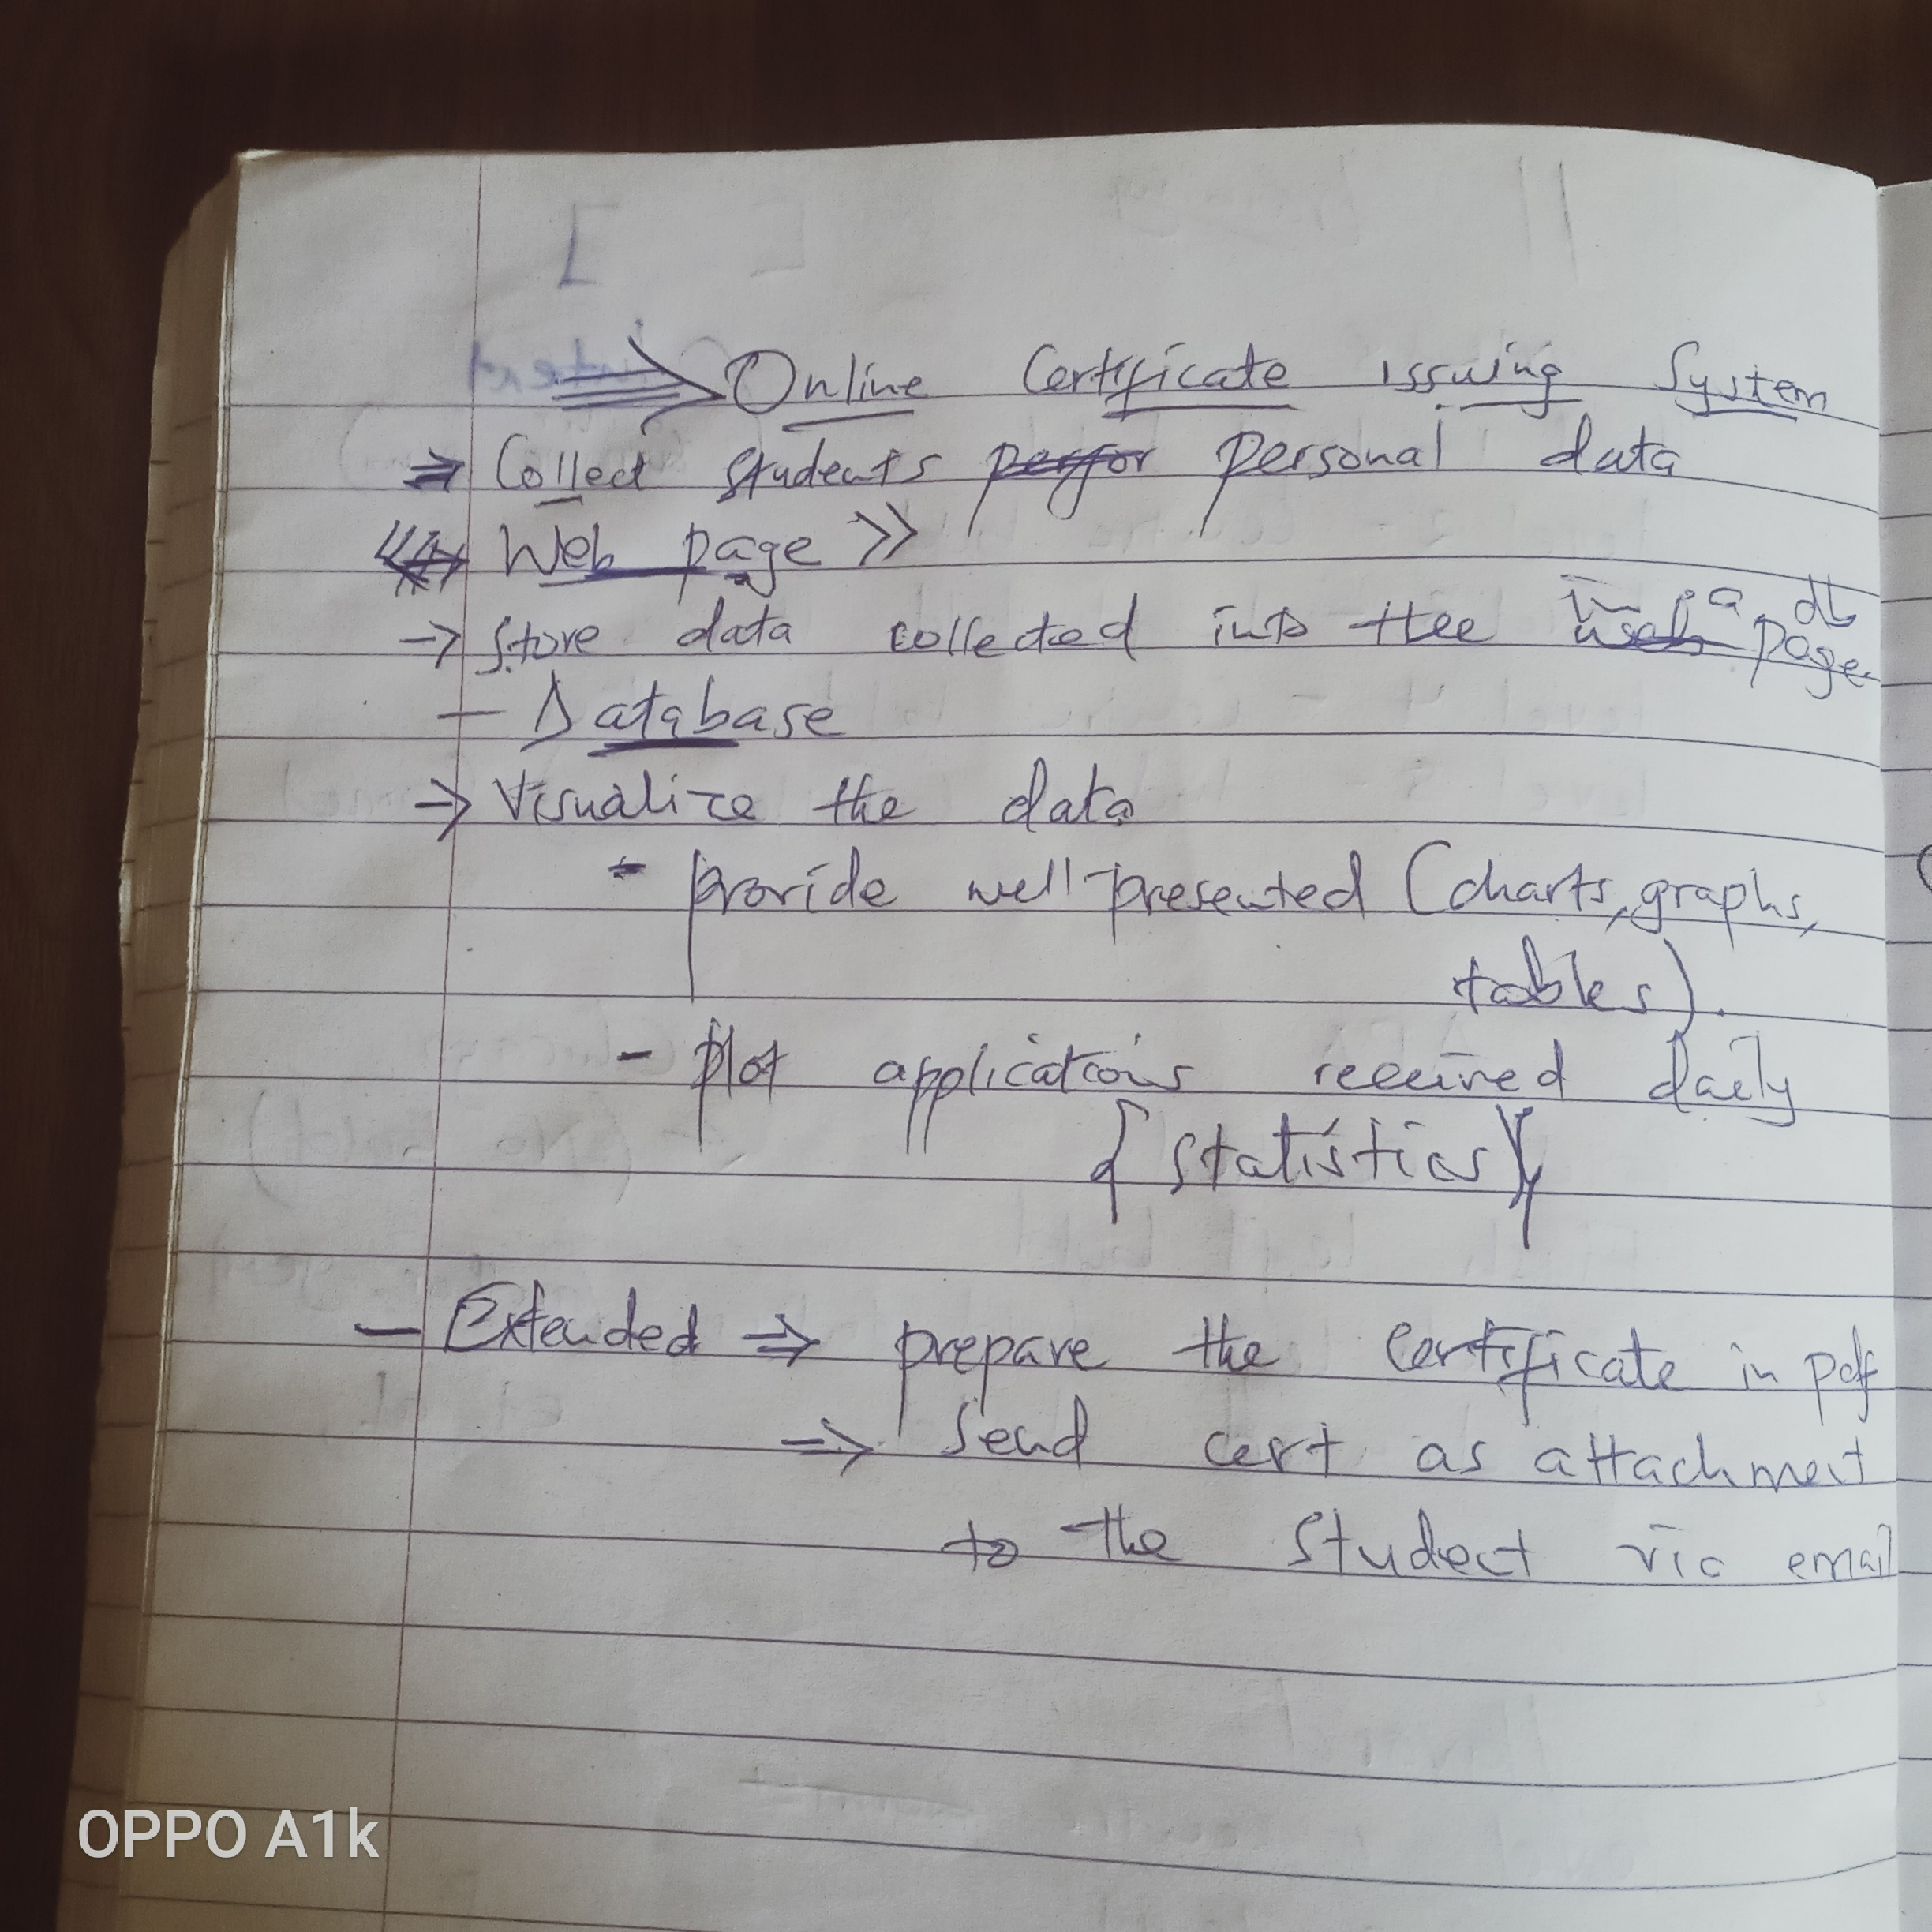 ⇒ Online Certificate issuing System
⇒ Collect students personal data
<< Web page >>
→ Store data collected into the in a db
- Database
→ Visualize the data
- provide well-presented (charts, graphs,
tables).
- plot applications received daily
{statistics}
- Extended ⇒ prepare the certificate in pdf
⇒ Send cert as attachment
to the student via email
OPPO A1k